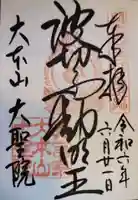 奉拝
令和六年
六月廿一日
波切不動明王
大本山 大聖院